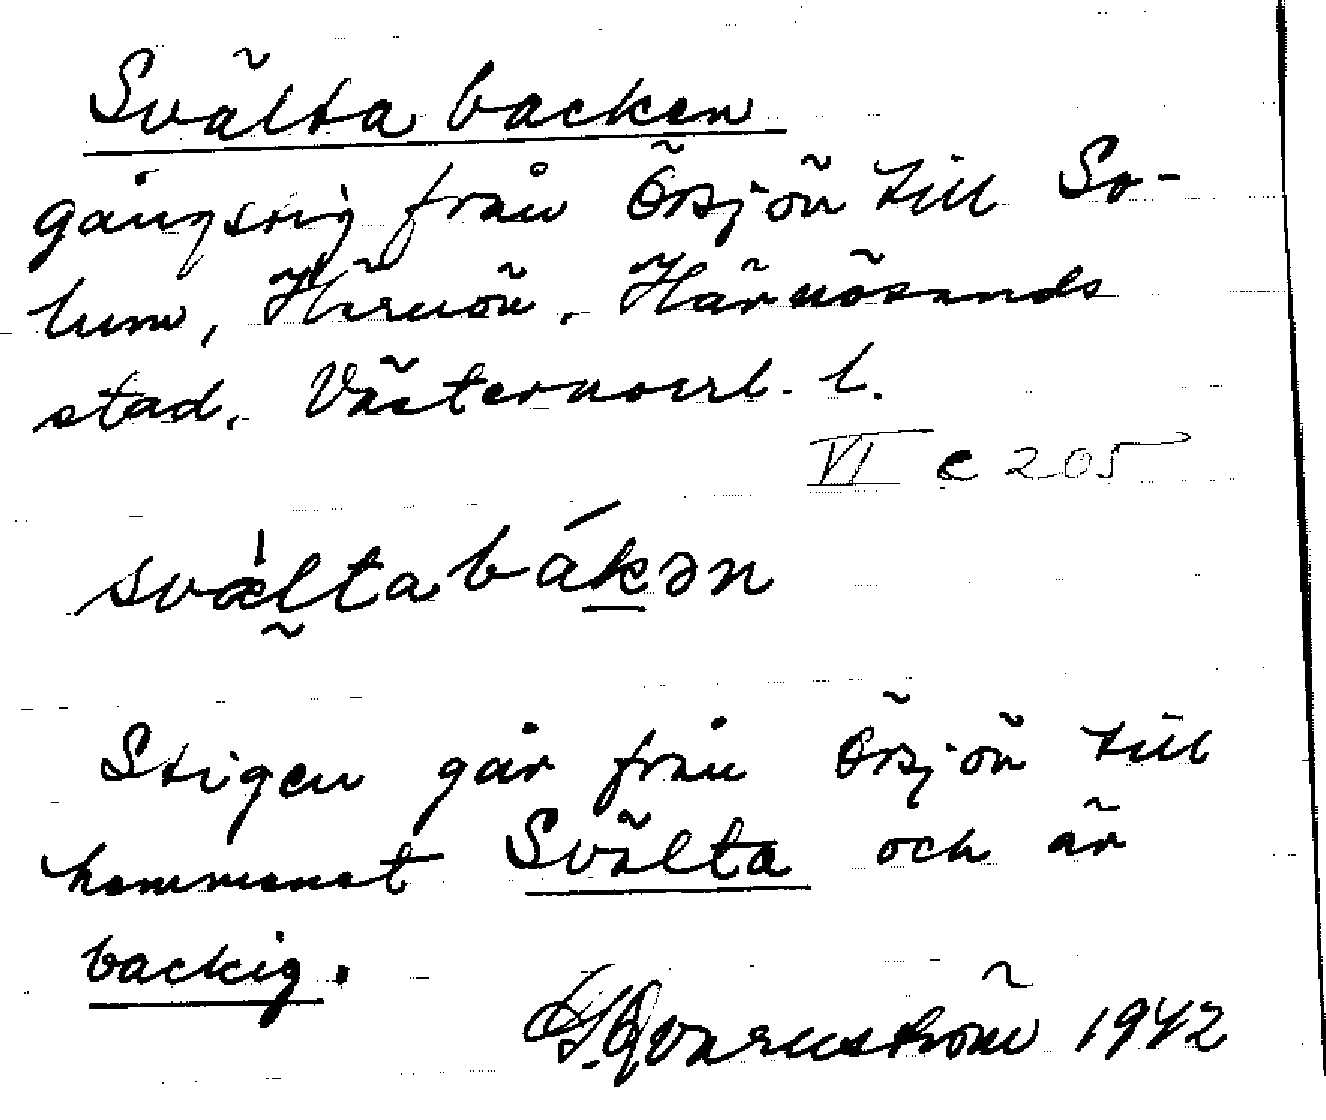 Svälta backen
gångstig från Örsjön till So-
lum, Härnön, Härnösands
stad, Västernorrl. l.
VI c 205
svæ̀ltabákən
Stigen går från Örsjön till
hemmanet Svälta och är
backig.
Qvarnström 1942